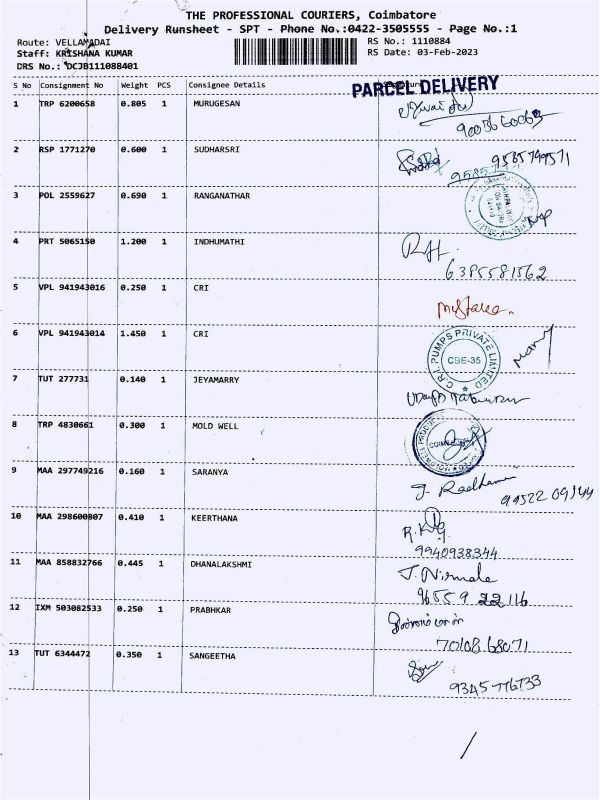 THE PROFESSIONAL COURIERS, Coimbatore
Delivery Runsheet - SPT - Phone No.:0422-3505555 - Page No.:1
Route: VELLAMADAI RS No.: 1110884
Staff: KRISHANA KUMAR RS Date: 03-Feb-2023
DRS No.: DCJB111088401
S No Consignment No Weight PCS Consignee Details
PARCEL DELIVERY
1 TRP 6200658 0.805 1 MURUGESAN
2 RSP 1771270 0.600 1 SUDHARSRI
9585799571
3 POL 2559627 0.690 1 RANGANATHAR
4 PRT 5065150 1.200 1 INDHUMATHI
6385581562
5 VPL 941943016 0.250 1 CRI
mistake.
6 VPL 941943014 1.450 1 CRI
C.R.I. PUMPS PRIVATE LIMITED
CBE-35
7 TUT 277731 0.140 1 JEYAMARRY
8 TRP 4830661 0.300 1 MOLD WELL
9 MAA 297749216 0.160 1 SARANYA
99522 09144
10 MAA 298600807 0.410 1 KEERTHANA
9940938344
11 MAA 858832766 0.445 1 DHANALAKSHMI
J. Nirmala
96559 22116
12 IXM 503082533 0.250 1 PRABHKAR
70108 68071
13 TUT 6344472 0.350 1 SANGEETHA
9345776733